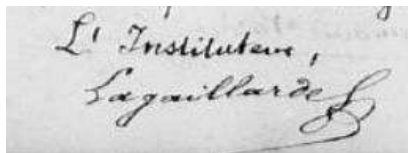 L'Instituteur,
Lagaillarde